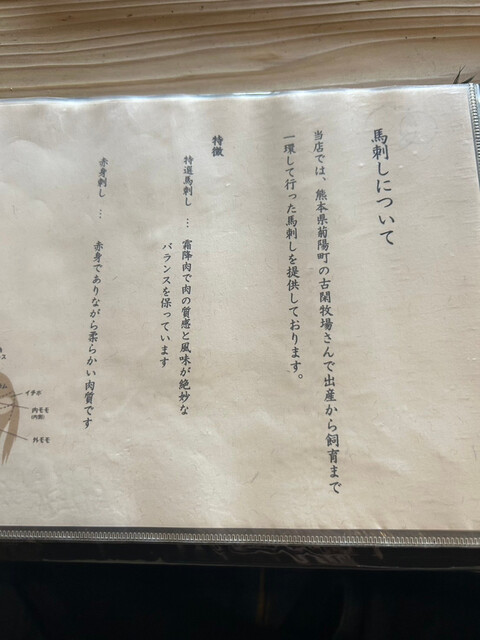 馬刺しについて
当店では、熊本県菊陽町の古閑牧場さんで出産から飼育まで
一環して行った馬刺しを提供しております。
特徴
特選馬刺し … 霜降肉で肉の質感と風味が絶妙な
バランスを保っています
赤身刺し … 赤身でありながら柔らかい肉質です
イチボ
内モモ
外モモ